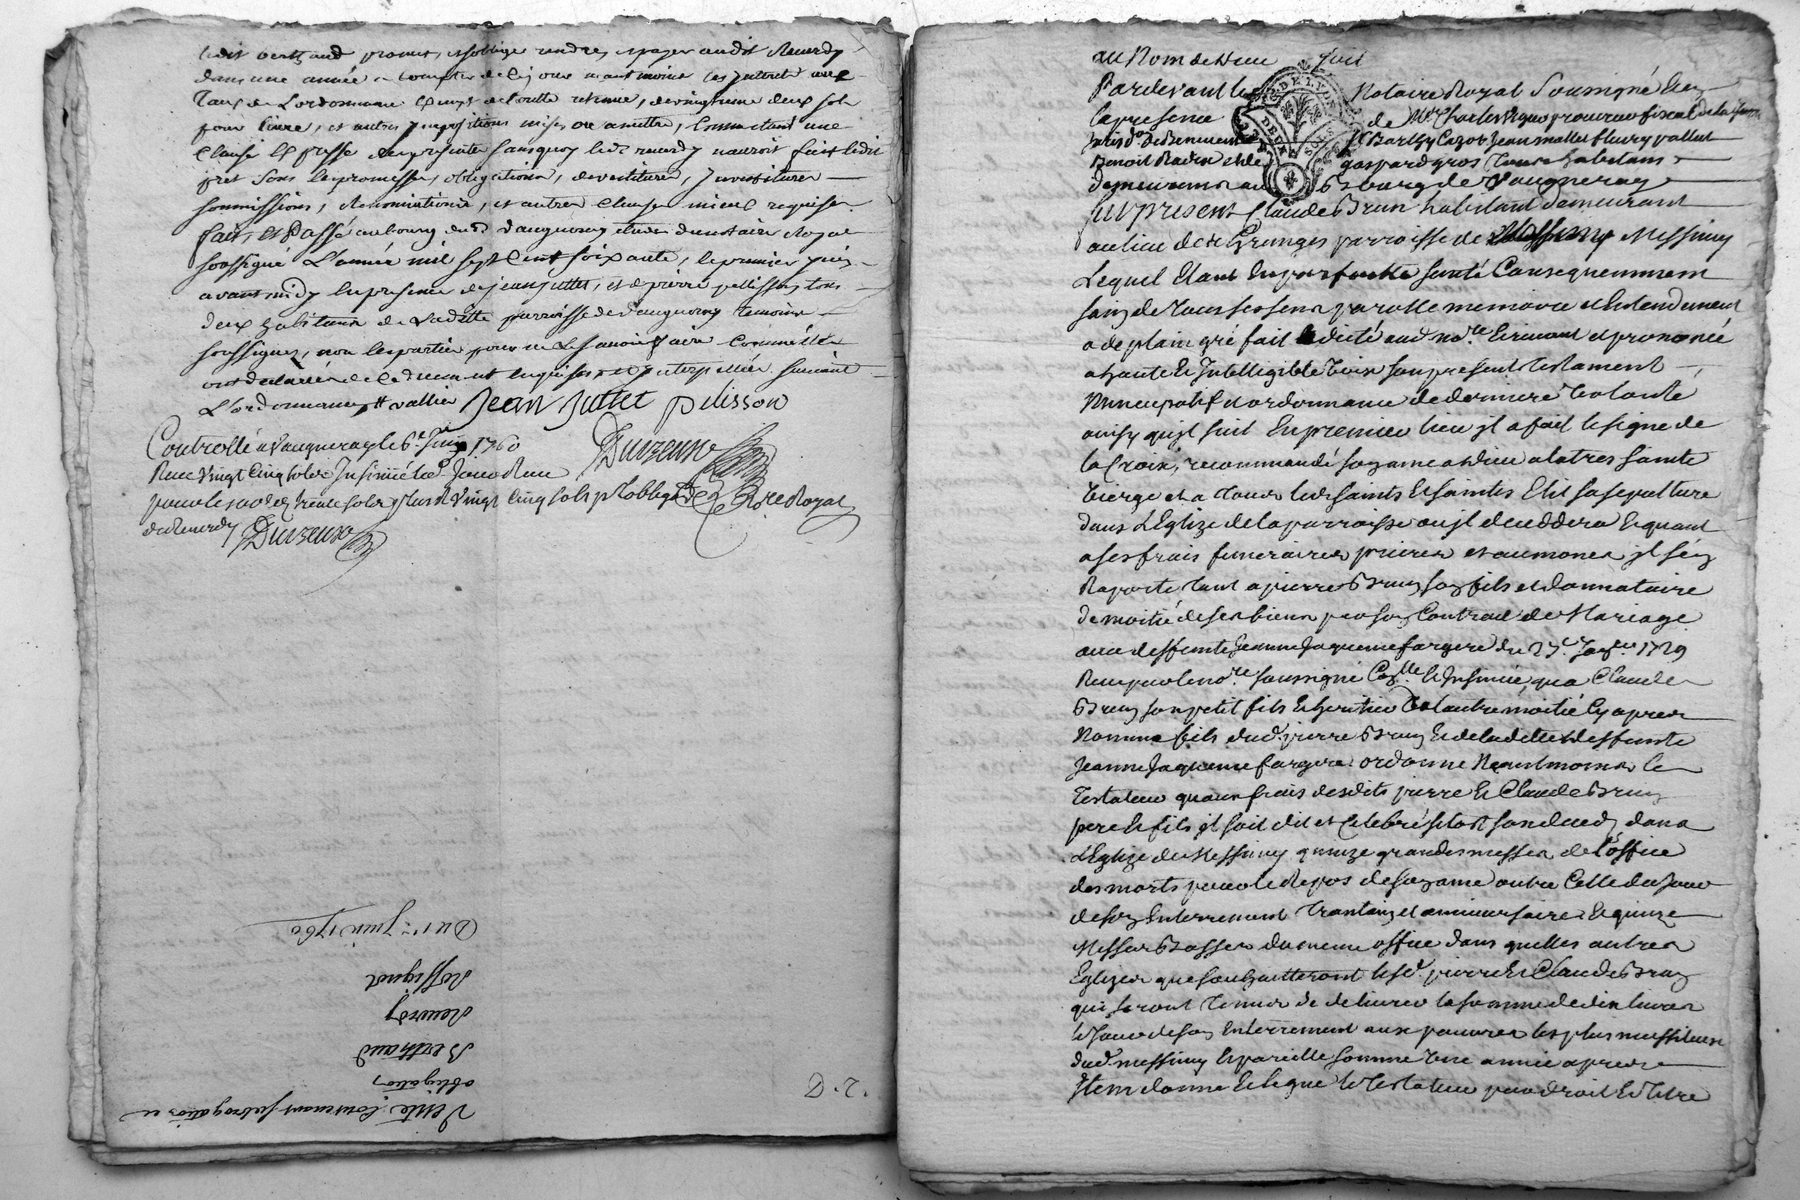 ledit Berthaud promet, et soblige rendre, et payer audit Reverdy
dans une année a compter de ce jour neantmoins les interets au
Taux de L'ordonnance Exempt de toutte retenue, de vingtieme deux sols
pour livre, et autres impositions mises ou a mettre, Comme étant une
Clause Expresse des presentes sans quoy led. reverdy nauroit fait ledit
pret sous les promesses, obligations, devestitures, investitures
soumissions, Renonciations, et autres Clauses mieux requises
fait, et Passé au bourg dud. vaugneray etude du notaire Royal
soussigné L'année mil sept Cent soixante, le premier juin
avant midy En presence de jean juttet, et de pierre pellisson tous
deux habitans de paroisse de vaugneray temoins
soussignez, non les parties pour ne Le sçavoir faire Comme Elles
ont declarées de ce duement Enquises, et interpellées suivant
L'ordonnance vallier Jean Juttet pelisson
Controllé a Vaugneray le 6e. Juin 1760
Reçu Vingt Cinq sols Insinué led. Jour Reçu Duvzeune
pour le trente sols plus Vingt Cinq sols p. l'obligon. Nore Royal
de Reverdy Duvzeune
Du 1er Juin 1760
Rossignol
Reverdy
Berthaud
obligation
Vente, Contenant subrogation et
D. 2.
au Nom de Dieu soit
Pardevant le Notaire Royal Soussigné Et en
la presence de Me. Charles procureur fiscal de la
Jurisdon. de Benevent, Sr. Barthy Cazot Jean mallet fleury vallet
Benoit Radix et de gaspard gros Tous habitans
demeurans au Bourg de Vaugneray
fut present Claude Brun habitant demeurant
au lieu de Granges parroisse de Messimy
Lequel Etant En parfaitte santé Consequemment
sain de tous ses sens parolle memoire et Entendement
a de plain gré fait Et dicté aud. nore. Ecrivant et prononcé
a haute Et Intelligible Voix son present testament
Nuncupatif et ordonnance de derniere Volonté
ainsy qu'jl suit En premier lieu jl a fait le signe de
la Croix, recommandé son ame a Dieu a la tres sainte
Vierge et a tous les saints Et saintes Elit sa sepulture
dans L'Eglize de la parroisse ou jl deceddera Et quant
a ses frais funeraires prieres et aumones jl s'en
Raporte tant a pierre Brun son fils et donnataire
de moitié de ses biens par son Contract de Mariage
avec deffunte Jeanne Jaqueme fargere du 27e. Janer. 1729
Reçu par le nore. soussigné Conllé. Et Insinué, qua Claude
Brun son petit fils Et heritier De l'autre moitié Cy apres
Nommé fils dud. pierre Brun Et de ladette deffunte
Jeanne Jaqueme fargere ordonne Neantmoins le
Testateur qu'aux frais desdits pierre Et Claude Brun
pere Et fils jl soit dit et Celebré sitot son deced dans
L'Eglize de Messimy quinze grandes messes de L'office
des morts pour le Repos de son ame outre Celle du Jour
de son Enterrement trantain et anniversaire Et quinze
Messes Basses du meme office dans quelles autres
Eglizes que souhaitteront lesd. pierre Et Claude Brun
qui seront tenus de delivrer la somme de dix livres
le Jour de son Enterrement aux pauvres les plus necessiteux
dud. messimy Et pareille somme une année apres
Item donne Et legue le Testateur par droit Et titre